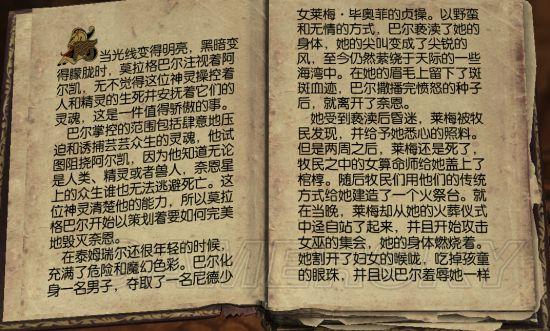 当光线变得明亮，黑暗变
得朦胧时，莫拉格巴尔注视着阿
尔凯，无不觉得这位神灵操控着
人和精灵的生死并安抚着它们的
灵魂，这是一件值得骄傲的事。
巴尔掌控的范围包括肆意地压
迫和诱捕芸芸众生的灵魂，他试
图阻挠阿尔凯，因为他知道无论
是人类、精灵或者兽人，奈恩星
上的众生谁也无法逃避死亡。这
位神灵清楚他的能力，所以莫拉
格巴尔开始以策划着要如何完美
地毁灭奈恩。
在泰姆瑞尔还很年轻的时候，
充满了危险和魔幻色彩。巴尔化
身一名男子，夺取了一名尼德少
女莱梅·毕奥菲的贞操。以野蛮
和无情的方式，巴尔亵渎了她的
身体，她的尖叫变成了尖锐的
风，至今仍然萦绕于天际的一些
海湾中。在她的眉毛上留下了斑
斑血迹，巴尔撒播完愤怒的种子
后，就离开了奈恩。
她受到亵渎后昏迷，莱梅被牧
民发现，并给予她悉心的照料。
但是两周之后，莱梅还是死了，
牧民之中的女算命师给她盖上了
棺椁。随后牧民们用他们的传统
方式给她建造了一个火祭台。就
在当晚，莱梅却从她的火葬仪式
中径自站了起来，并且开始攻击
女巫的集会，她的身体燃烧着。
她割开了妇女的喉咙，吃掉孩童
的眼珠，并且以巴尔羞辱她一样